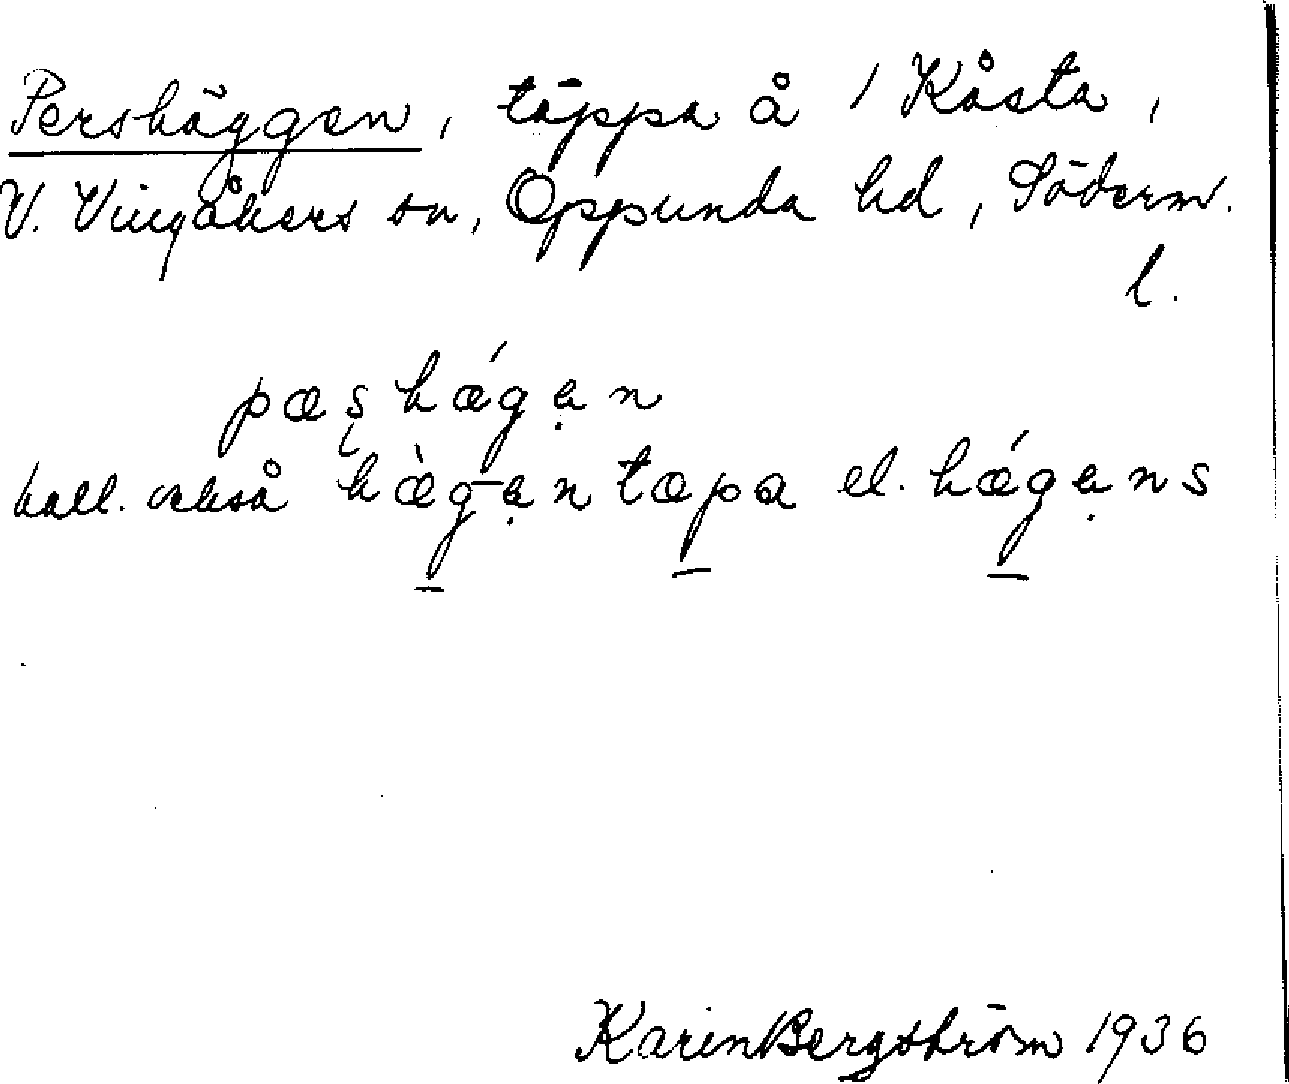 Pershäggen, täppa å 1 Kåsta,
V. Vingåkers sn, Oppunda hd, Söderm.
l.
pæʂhǽgən
kall. också hæ̀gəntæpa el. hǽgəns
Karin Bergström 1936